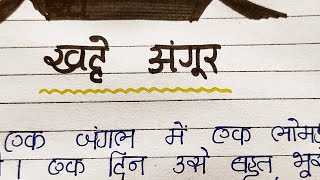 खट्टे अंगूर
एक जंगल में एक लोमड़
। एक दिन उसे बहुत भूख